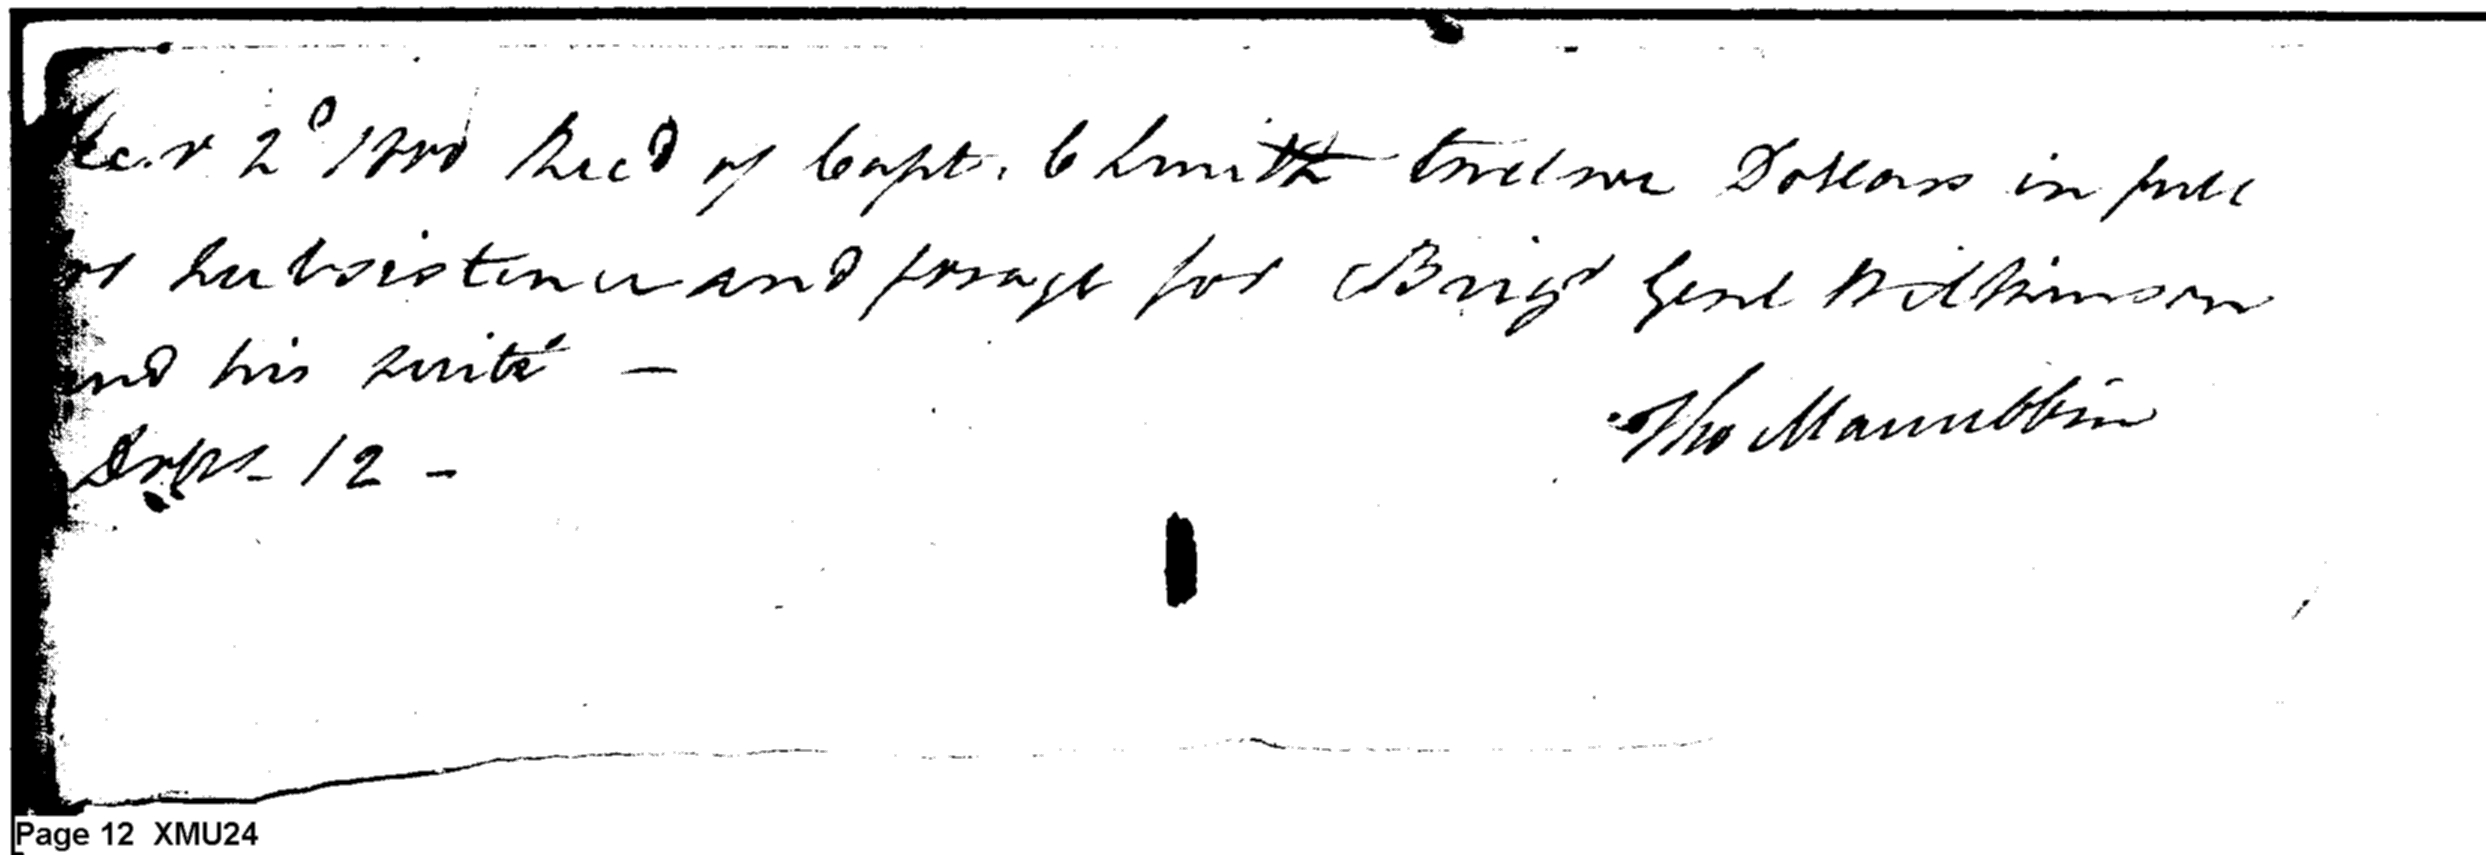 Decr 2d 1800 Recd of Capt. C Smith twelve Dollars in full
for Subsistence and forage for Brigr Genl Wilkinson
and his suite —
Dolls 12 -
Tho
Page 12 XMU24